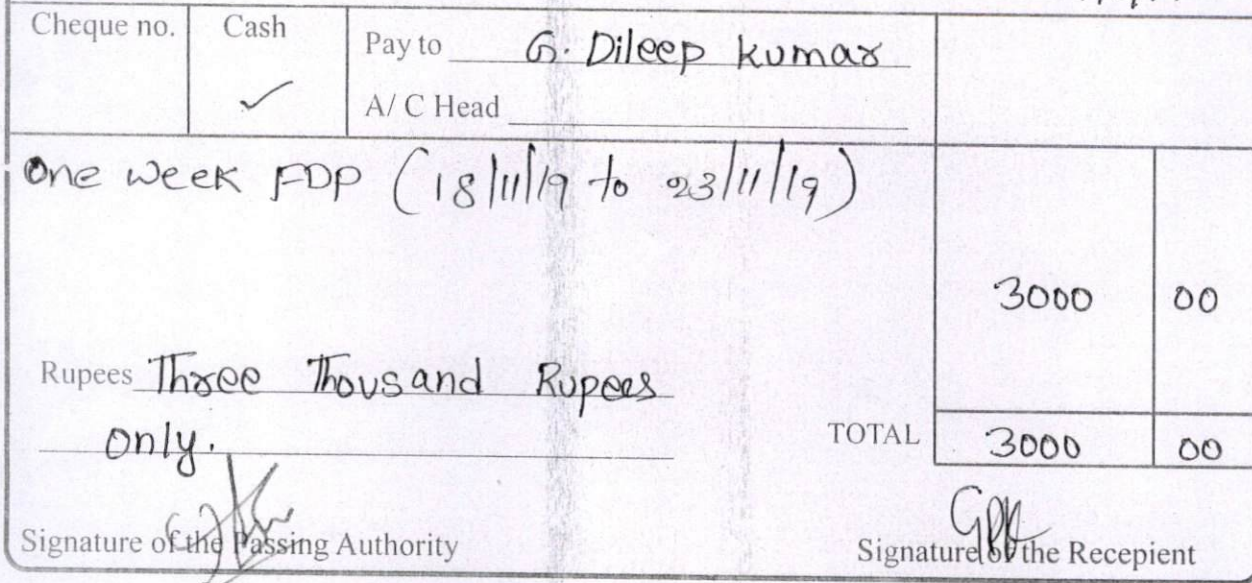 Cheque no. Cash Pay to G. Dileep Kumar
✓ A/ C Head
One week FDP (18/11/19 to 23/11/19)
3000 00
Rupees Three Thousand Rupees
only. TOTAL 3000 00
Signature of the Passing Authority Signature of the Recepient